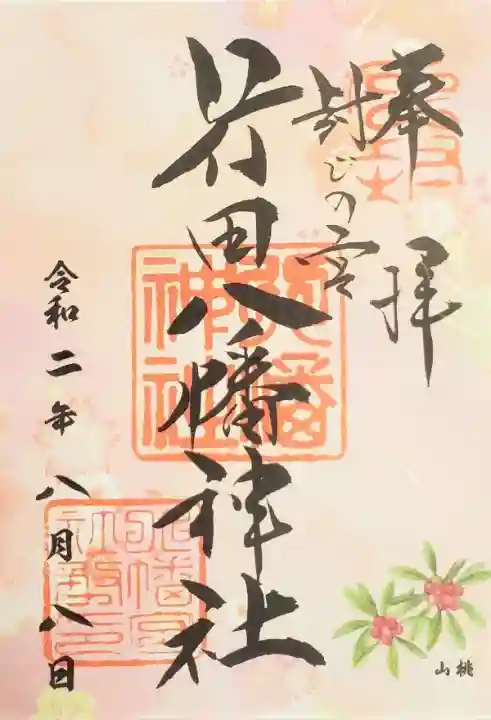 奉拝
封じの宮
行田八幡神社
八幡神社
令和二年八月八日
山桃